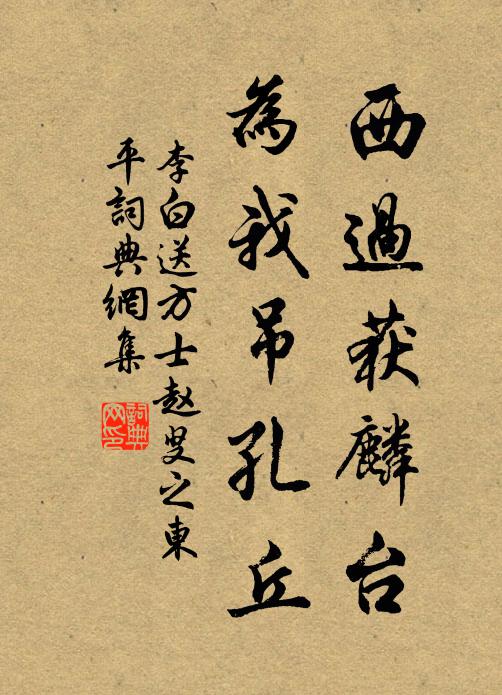 西過获麟台
為我吊孔丘
李白送方士赵叟之東
平詞典網集
詞典
网印